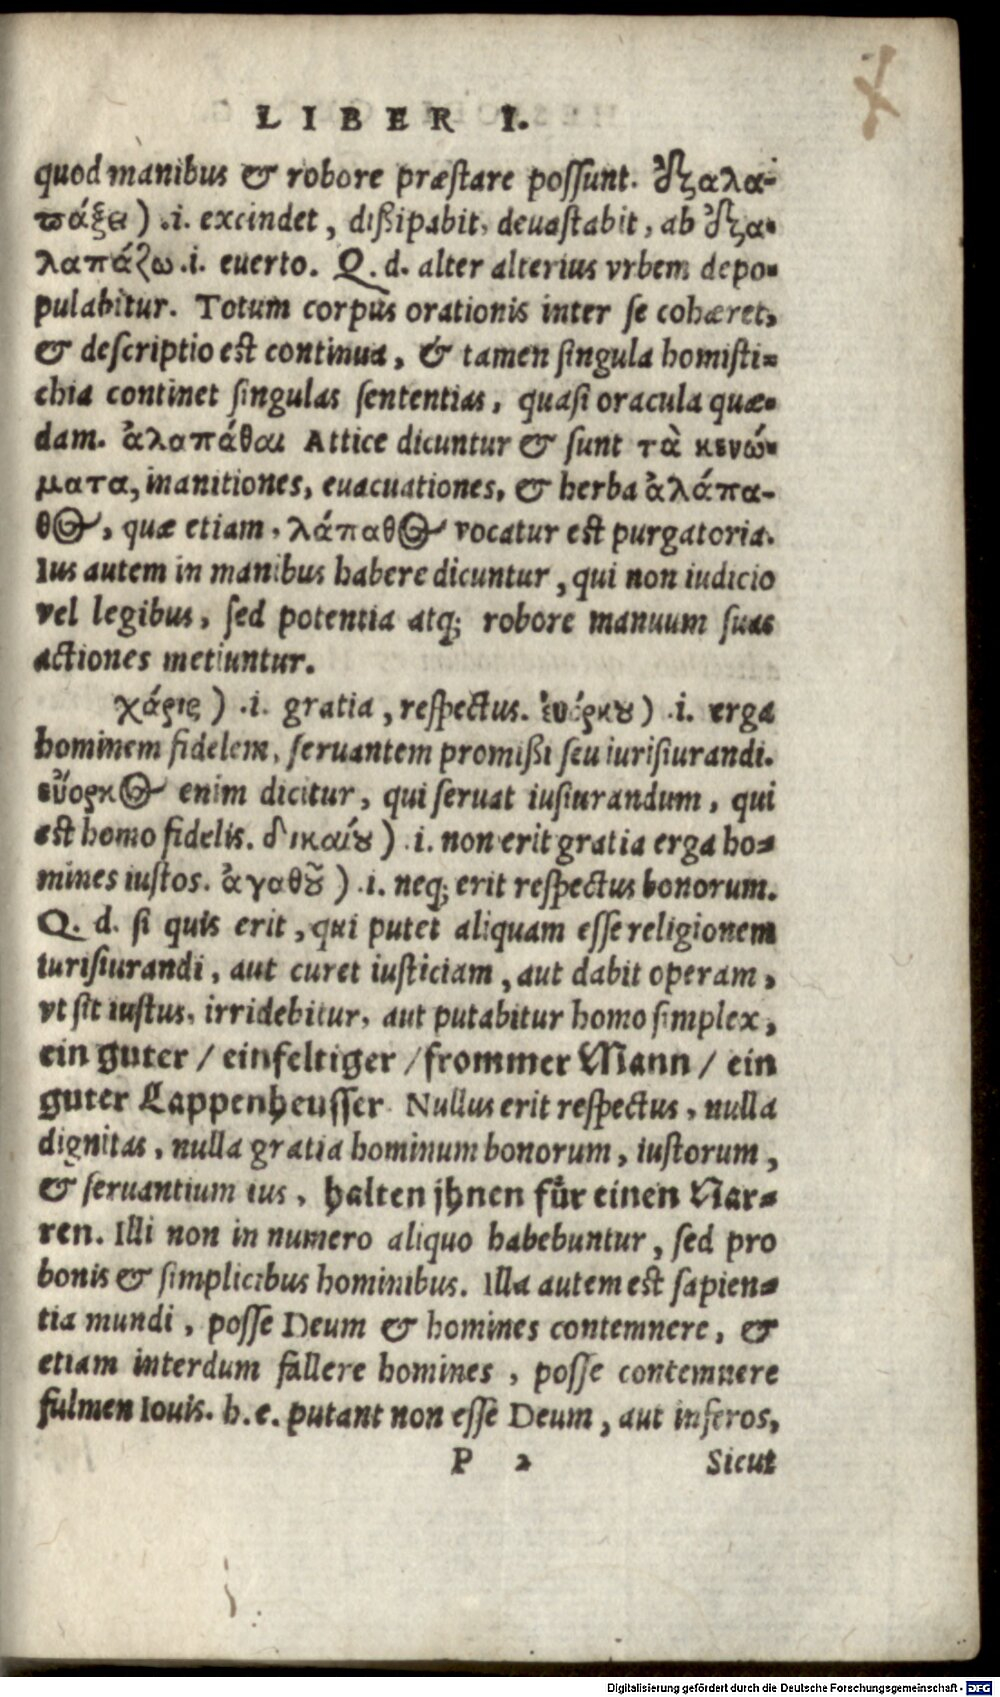 LIBER I.
quod manibus & robore præstare possunt. ἐξαλα-
πάξει) .i. excindet, dißipabit, deuastabit, ab ἐξα-
λαπάζω .i. euerto. Q. d. alter alterius vrbem depo-
pulabitur. Totum corpus orationis inter se cohæret,
& descriptio est continua, & tamen singula homisti-
chia continet singulas sententias, quasi oracula quæ-
dam. ἀλαπάθαι Attice dicuntur & sunt τὰ κενώ-
ματα, inanitiones, euacuationes, & herba ἀλάπα-
θος, quæ etiam, λάπαθος vocatur est purgatoria.
Ius autem in manibus habere dicuntur, qui non iudicio
vel legibus, sed potentia atq; robore manuum suas
actiones metiuntur.
χάρις) .i. gratia, respectus. ἐυόρκου) .i. erga
hominem fidelem, seruantem promißi seu iurisiurandi.
εὔορκος enim dicitur, qui seruat iusiurandum, qui
est homo fidelis. δικαίου) .i. non erit gratia erga ho-
mines iustos. ἀγαθοῦ) .i. neq; erit respectus bonorum.
Q. d. si quis erit, qui putet aliquam esse religionem
iurisiurandi, aut curet iusticiam, aut dabit operam,
vt sit iustus, irridebitur, aut putabitur homo simplex,
ein guter / einfeltiger / frommer Mann / ein
guter Lappenheusser. Nullus erit respectus, nulla
dignitas, nulla gratia hominum bonorum, iustorum,
& seruantium ius, halten jhnen für einen Nar-
ren. Illi non in numero aliquo habebuntur, sed pro
bonis & simplicibus hominibus. Illa autem est sapien-
tia mundi, posse Deum & homines contemnere, &
etiam interdum fallere homines, posse contemnere
fulmen Iouis. h.e. putant non esse Deum, aut inferos,
P 2 Sicut
Digitalisierung gefördert durch die Deutsche Forschungsgemeinschaft - DFG